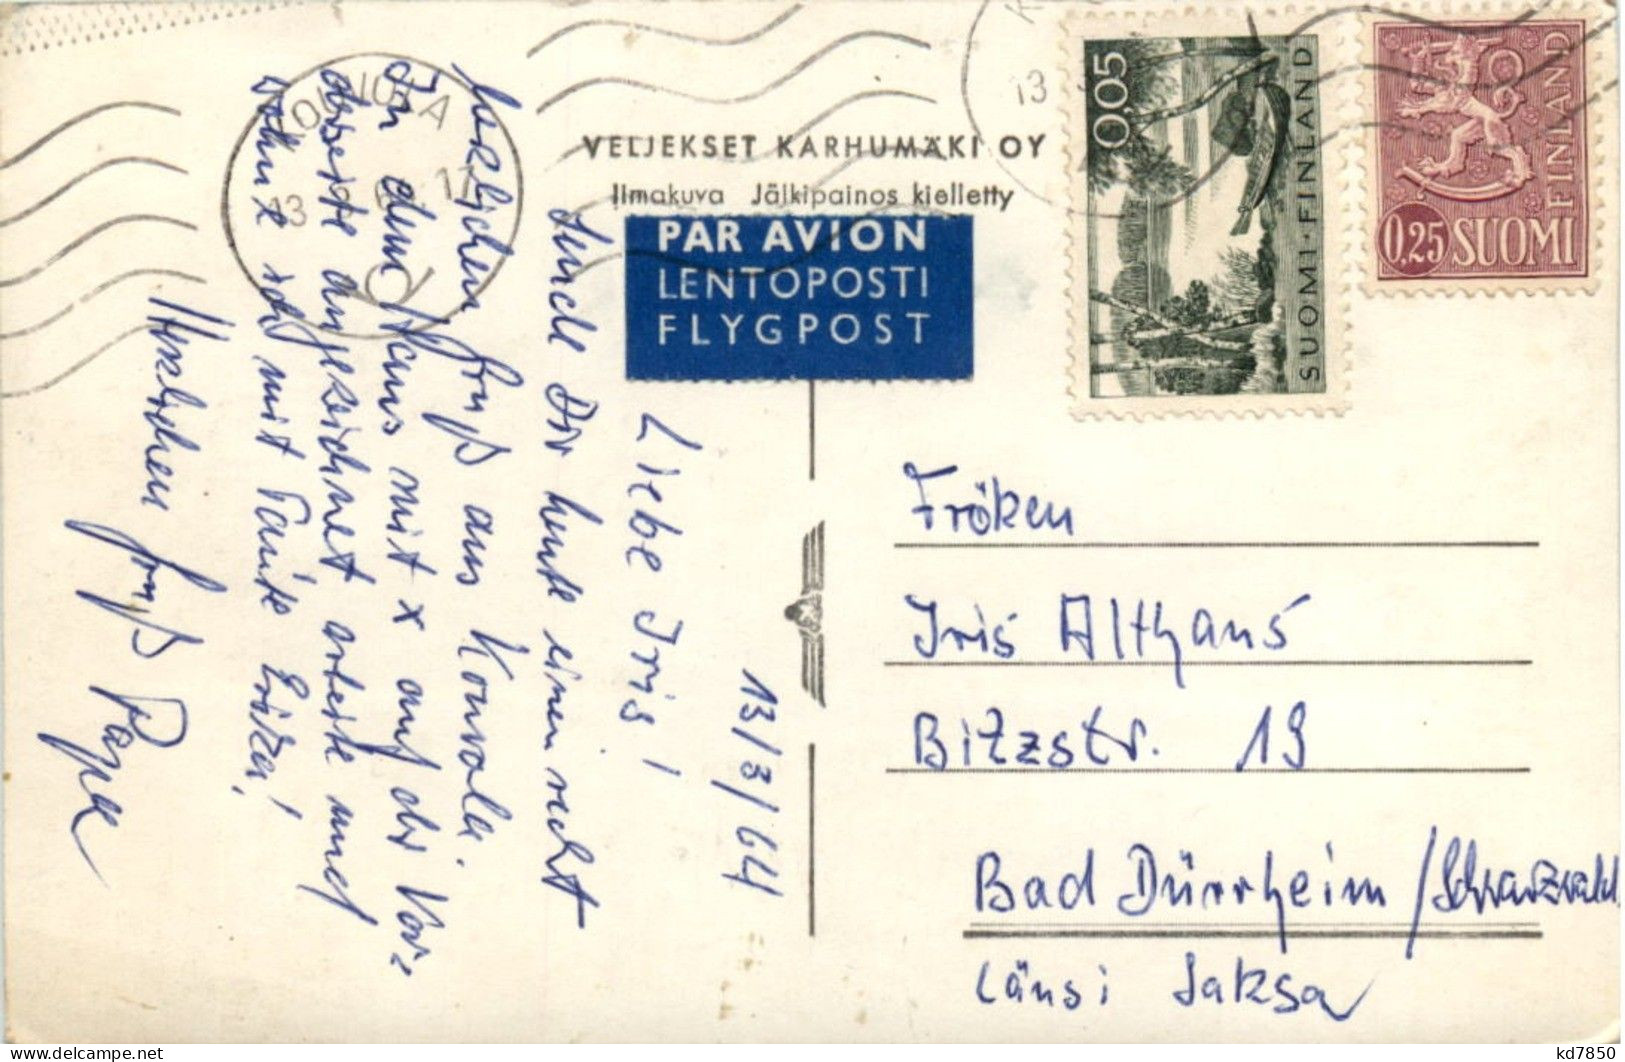 VELJEKSET KARHUMÄKI OY
Ilmakuva Jälkipainos kielletty
PAR AVION
LENTOPOSTI
FLYGPOST
0,05
SUOMI-FINLAND
FINLAND
0,25 SUOMI
KOUVOLA
13 17
13
13/3/64
Liebe Iris!
Sende Dir heute einen recht
herzlichen Gruß aus Kouvola.
In dem Haus mit x auf der Vor-
derseite angezeichnet arbeite und
wohne ich mit Tante Erika!
Herzlichen Gruß Papa
Fröken
Iris Althaus
Bitzstr. 19
Bad Dürrheim /Schwarzwald
Länsi Saksa
delcampe.net
kd7850